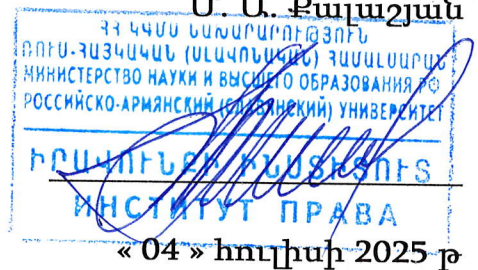 Մ․ Ա․ Քալաշյան
ՀՀ ԿԳՄՍ ՆԱԽԱՐԱՐՈՒԹՅՈՒՆ
ՌՈՒՍ-ՀԱՅԿԱԿԱՆ (ՍԼԱՎՈՆԱԿԱՆ) ՀԱՄԱԼՍԱՐԱՆ
МИНИСТЕРСТВО НАУКИ И ВЫСШЕГО ОБРАЗОВАНИЯ РФ
РОССИЙСКО-АРМЯНСКИЙ (СЛАВЯНСКИЙ) УНИВЕРСИТЕТ
ԻՐԱՎՈՒՆՔԻ ԻՆՍՏԻՏՈՒՏ
ИНСТИТУТ ПРАВА
« 04 » հուլիսի 2025 թ